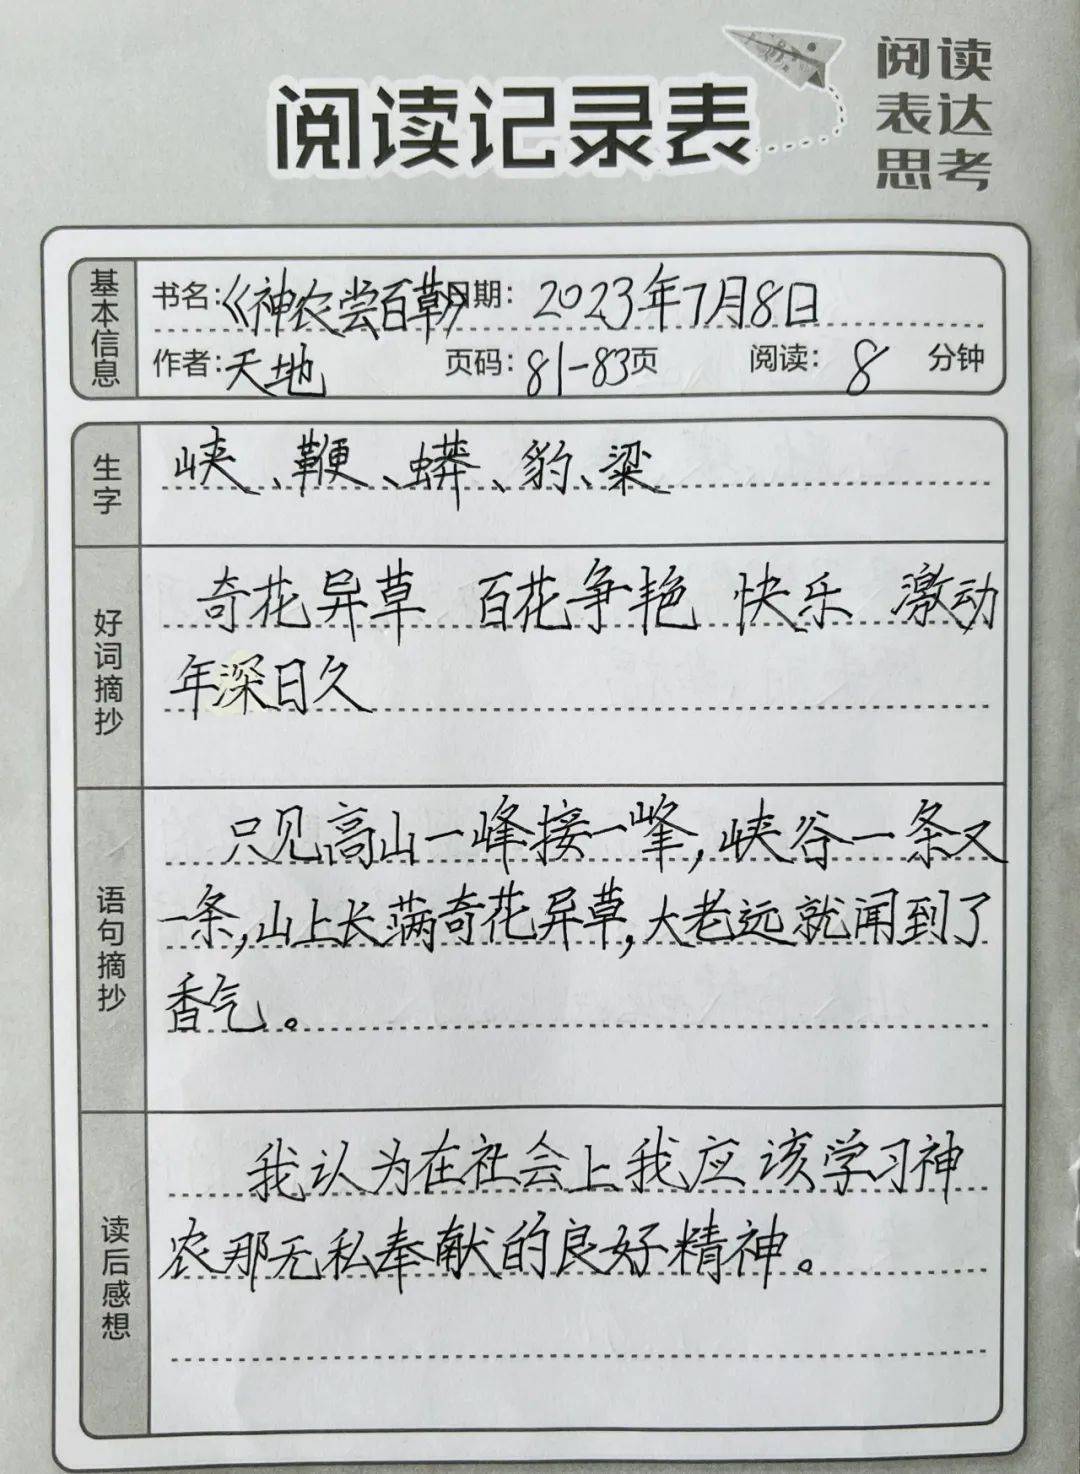 阅读记录表
阅读
表达
思考
基本信息
书名:《神农尝百草》日期: 2023年7月8日
作者:天地 页码:81-83页 阅读: 8 分钟
生字
峡、鞭、蟒、豹、梁
好词摘抄
奇花异草 百花争艳 快乐 激动
年深日久
语句摘抄
只见高山一峰接一峰,峡谷一条又
一条,山上长满奇花异草,大老远就闻到了
香气。
读后感想
我认为在社会上我应该学习神
农那无私奉献的良好精神。